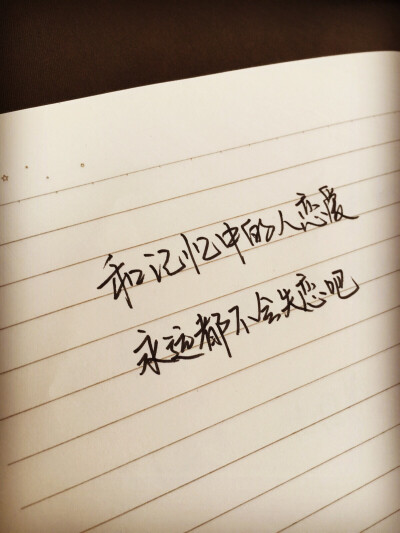 和记忆中的人恋爱
永远都不会失恋吧